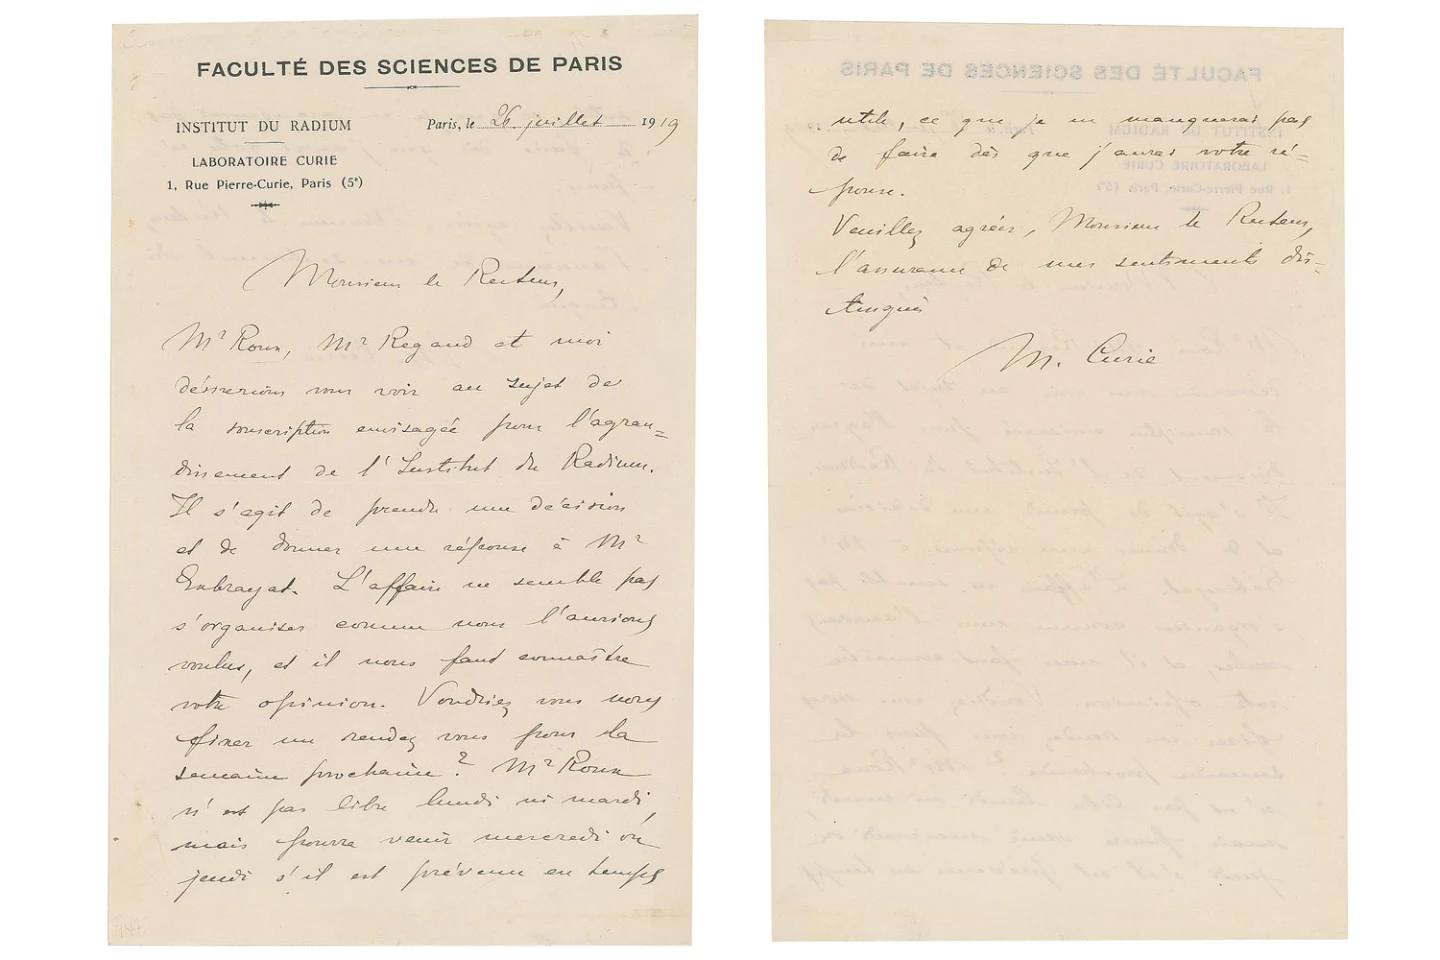 FACULTÉ DES SCIENCES DE PARIS
INSTITUT DU RADIUM
LABORATOIRE CURIE
1, Rue Pierre-Curie, Paris (5e)
Paris, le 26 juillet 1919
Monsieur le Recteur,
Mr Roux, Mr Regaud et moi
désirerions vous voir au sujet de
la souscription envisagée pour l'agran=
dissement de l'Institut du Radium.
Il s'agit de prendre une décision
et de donner une réponse à Mr
L'affaire ne semble pas
s'organiser comme nous l'aurions
voulu, et il nous faut connaître
votre opinion. Voudriez vous nous
fixer un rendez vous pour la
semaine prochaine ? Mr Roux
n'est pas libre lundi ni mardi,
mais pourra venir mercredi ou
jeudi s'il est prévenu en temps
utile, ce que je ne manquerai pas
de faire dès que j'aurai votre ré=
ponse.
Veuillez agréer, Monsieur le Recteur,
l'assurance de mes sentiments dis-
tingués
M. Curie